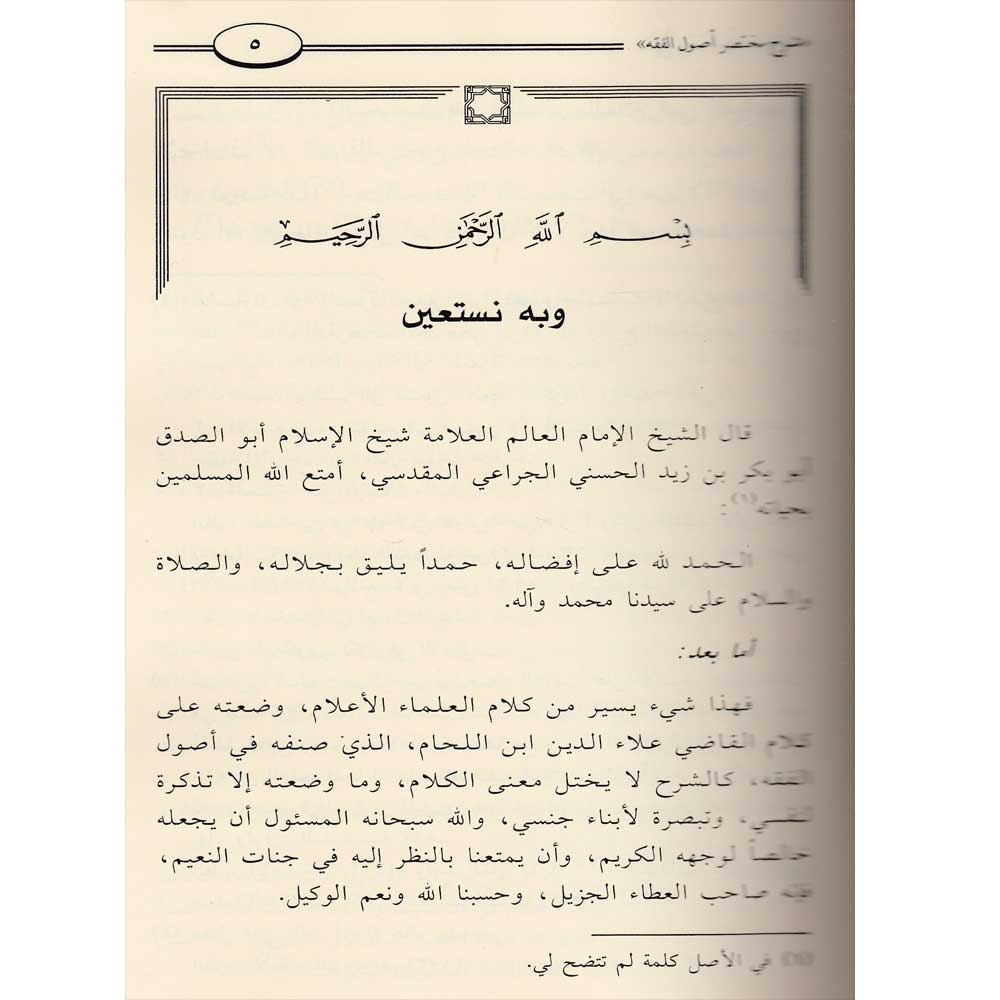 «شرح مختصر أصول الفقه» ٥
بِسْمِ ٱللَّهِ ٱلرَّحْمَٰنِ ٱلرَّحِيمِ
وبه نستعين
قال الشيخ الإمام العالم العلامة شيخ الإسلام أبو الصدق
أبو بكر بن زيد الحسني الجراعي المقدسي، أمتع الله المسلمين
بحياته(١):
الحمد لله على إفضاله، حمداً يليق بجلاله، والصلاة
والسلام على سيدنا محمد وآله.
أما بعد:
فهذا شيء يسير من كلام العلماء الأعلام، وضعته على
كلام القاضي علاء الدين ابن اللحام، الذي صنفه في أصول
الفقه، كالشرح لا يختل معنى الكلام، وما وضعته إلا تذكرة
لنفسي، وتبصرة لأبناء جنسي، والله سبحانه المسئول أن يجعله
خالصاً لوجهه الكريم، وأن يمتعنا بالنظر إليه في جنات النعيم،
فإنه صاحب العطاء الجزيل، وحسبنا الله ونعم الوكيل.
(١) في الأصل كلمة لم تتضح لي.